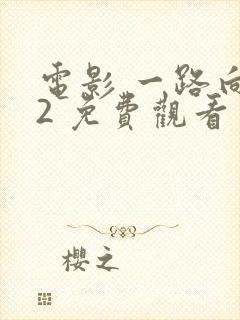 電影 一路向
2 免費觀看
櫻之